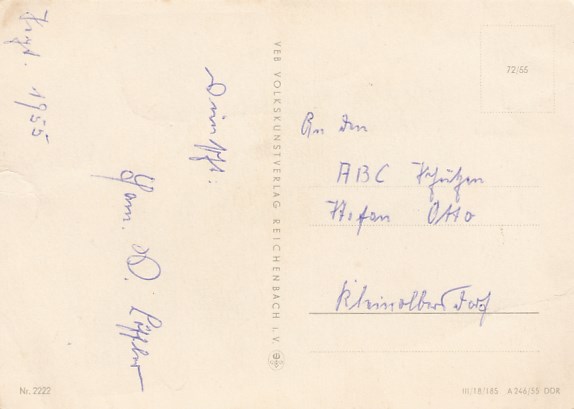 Sept. 1955
wünscht:
Fam. D. Löffler
VEB VOLKSKUNSTVERLAG REICHENBACH I. V.
72/55
An den
ABC Schützen
Stefan Otto
Kleinolbersdorf
Nr. 2222
III/18/185 A 246/55 DDR